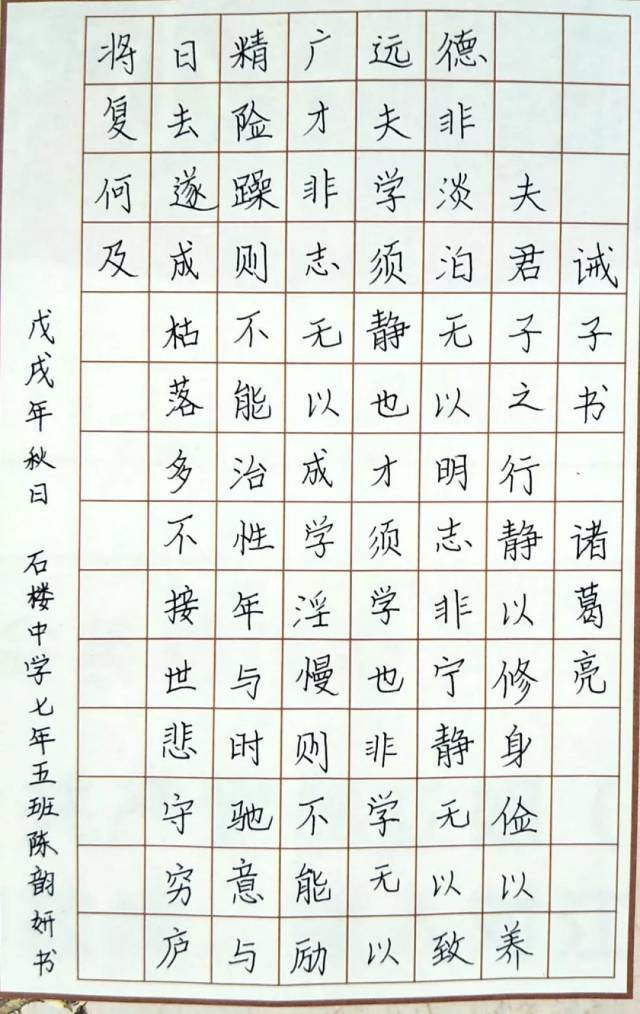 诫子书 诸葛亮
夫君子之行静以修身俭以养
德非淡泊无以明志非宁静无以致
远夫学须静也才须学也非学无以
广才非志无以成学淫慢则不能励
精险躁则不能治性年与时驰意与
日去遂成枯落多不接世悲守穷庐
将复何及
戊戌年秋日 石楼中学七年五班陈韵妍书